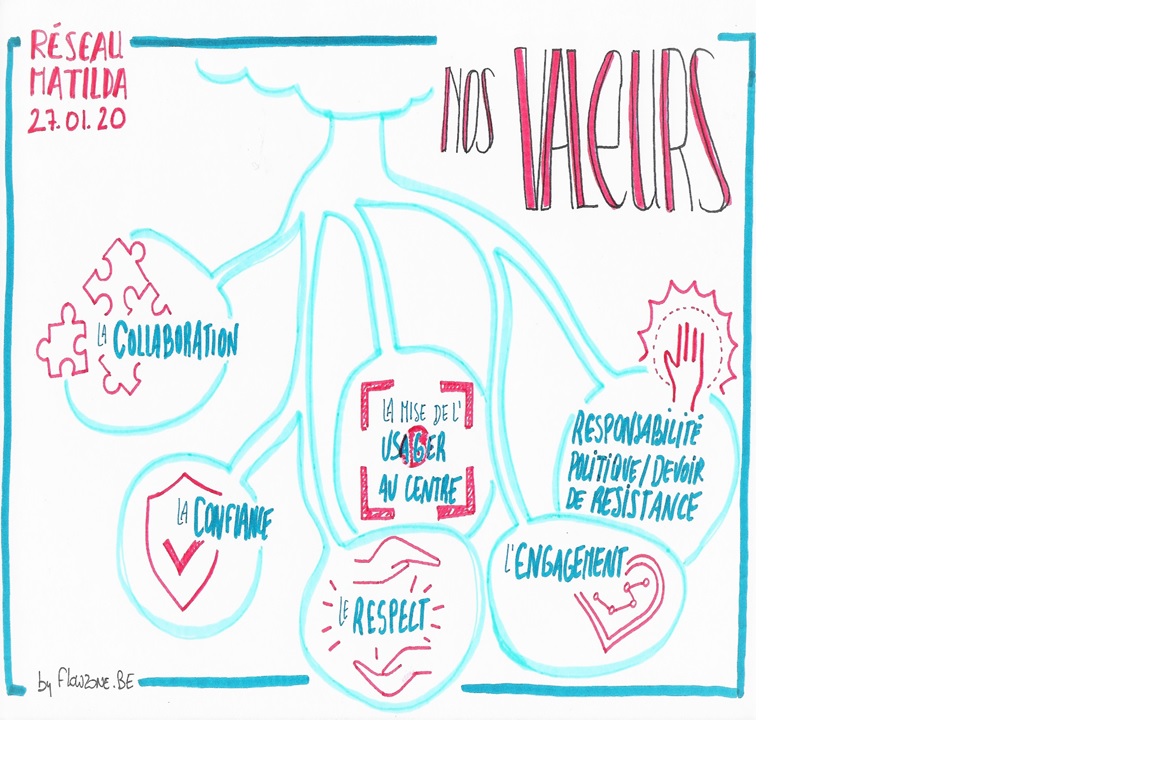 RÉSEAU
MATILDA
27.01.20
NOS VALEURS
LA COLLABORATION
LA CONFIANCE
LA MISE DE L'
USAGER
AU CENTRE
LE RESPECT
L'ENGAGEMENT
RESPONSABILITÉ
POLITIQUE/DEVOIR
DE RESISTANCE
by FlowZONE.BE